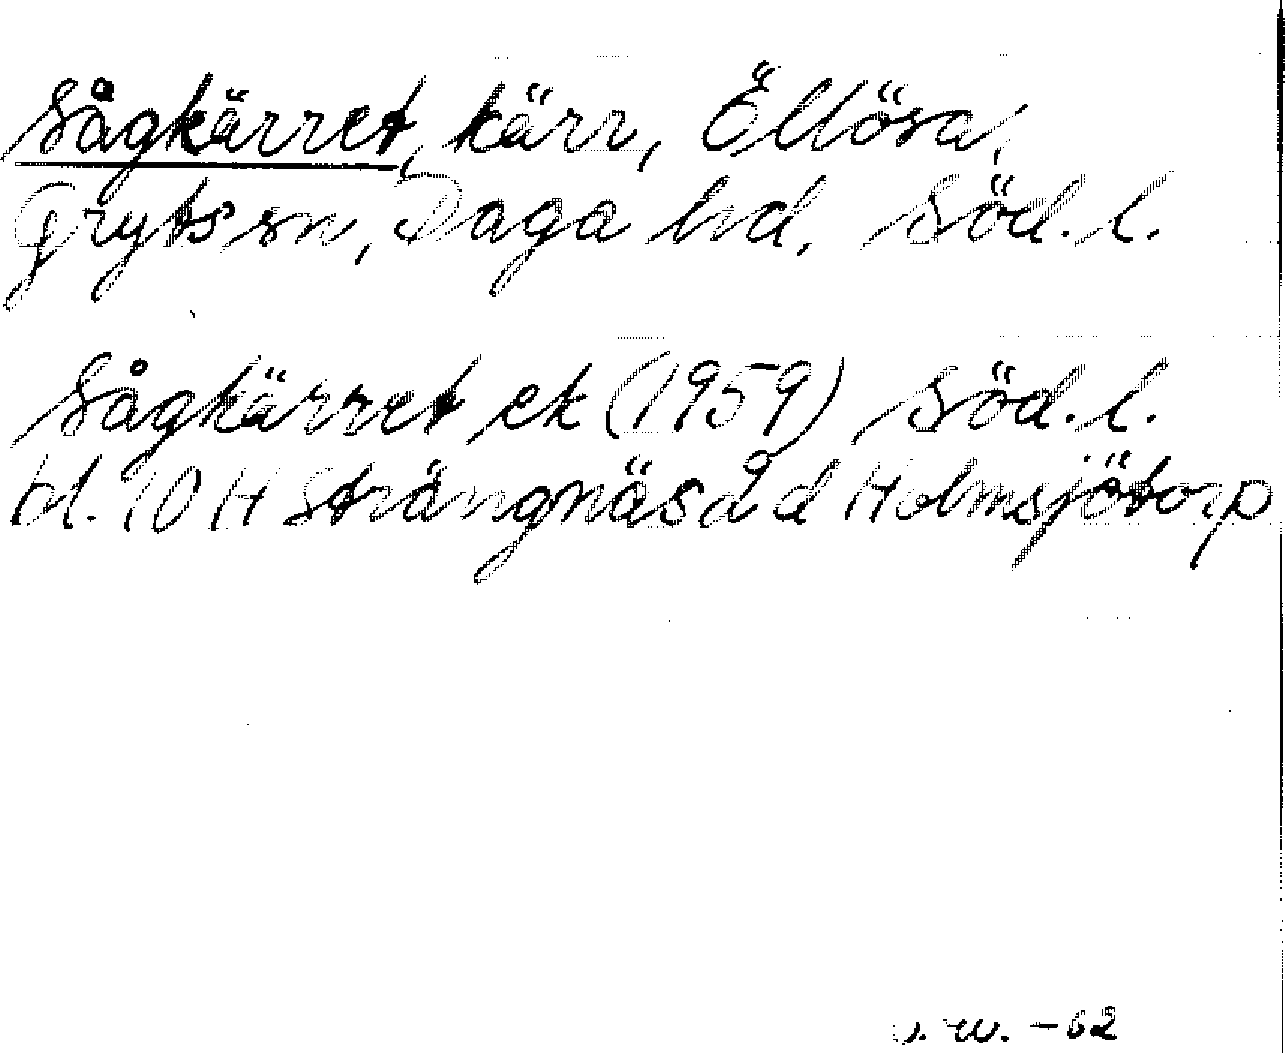 Sågkärret, kärr, Öllösa,
Gryts sn, Daga hd, Söd. l.
Sågkärret ek (1959) Söd. l.
bl. 10 H Strängnäs 2 d Holmsjötorp
w. -62